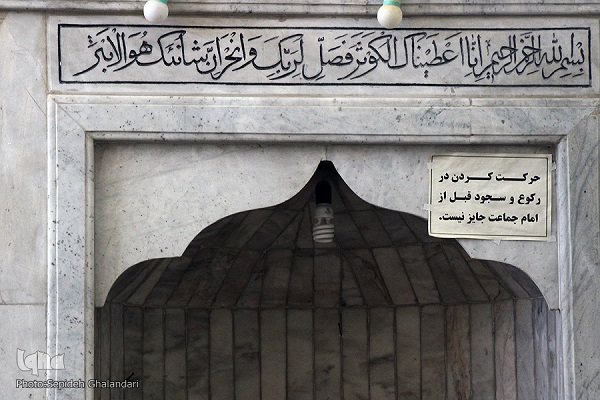 بسم الله الرحمن الرحیم انا اعطیناک الکوثر فصل لربک وانحر ان شانئک هو الابتر
حرکت کردن در
رکوع و سجود قبل از
امام جماعت جایز نیست.
iqna
Photo:Sepideh Ghalandari